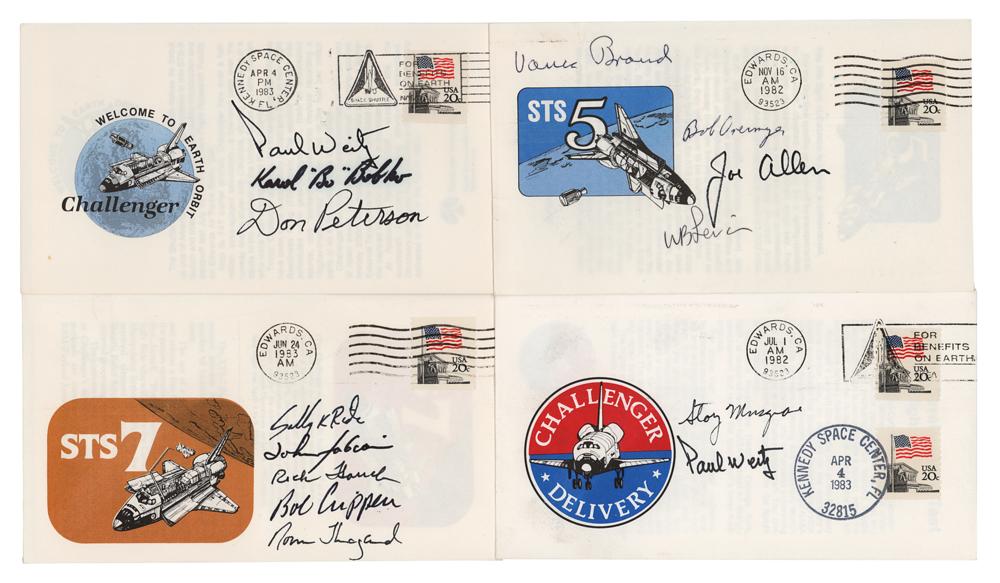 KENNEDY SPACE CENTER, FL.
APR 4
PM
1983
SPACE SHUTTLE
FOR
BENEFITS
ON EARTH
USA
20c
WELCOME TO EARTH ORBIT
Challenger
Paul Weitz
Karol "Bo" Bobko
Don Peterson
Vance Brand
EDWARDS, CA
NOV 16
AM
1982
93523
USA
20c
STS 5
Bob Overmyer
Joe Allen
WB Lenoir
EDWARDS, CA
JUN 24
AM
1983
93523
USA
20c
STS 7
Sally K Ride
John Fabian
Rick Hauck
Bob Crippen
Norm Thagard
EDWARDS, CA
JUL 1
AM
1982
93523
FOR
BENEFITS
ON EARTH
USA
20c
CHALLENGER
DELIVERY
Story Musgrave
Paul Weitz
KENNEDY SPACE CENTER, FL
APR
4
1983
32815
USA
20c